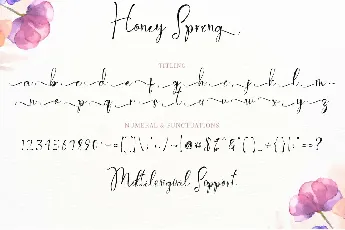 Honey Spreng
TITLING
a b c d e f g h i j k l m
n o p q r s t u v w x y z
NUMERAL & PUNCTUATIONS
1234567890
Multilengual Support